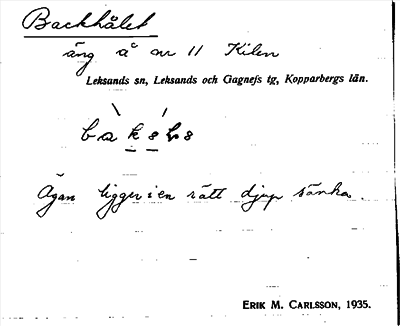 Backhålet
äng å nr 11 Kilen
Leksands sn, Leksands och Gagnefs tg, Kopparbergs län.
Ägan ligger i en rätt djup sänka.
ERIK M. CARLSSON, 1935.